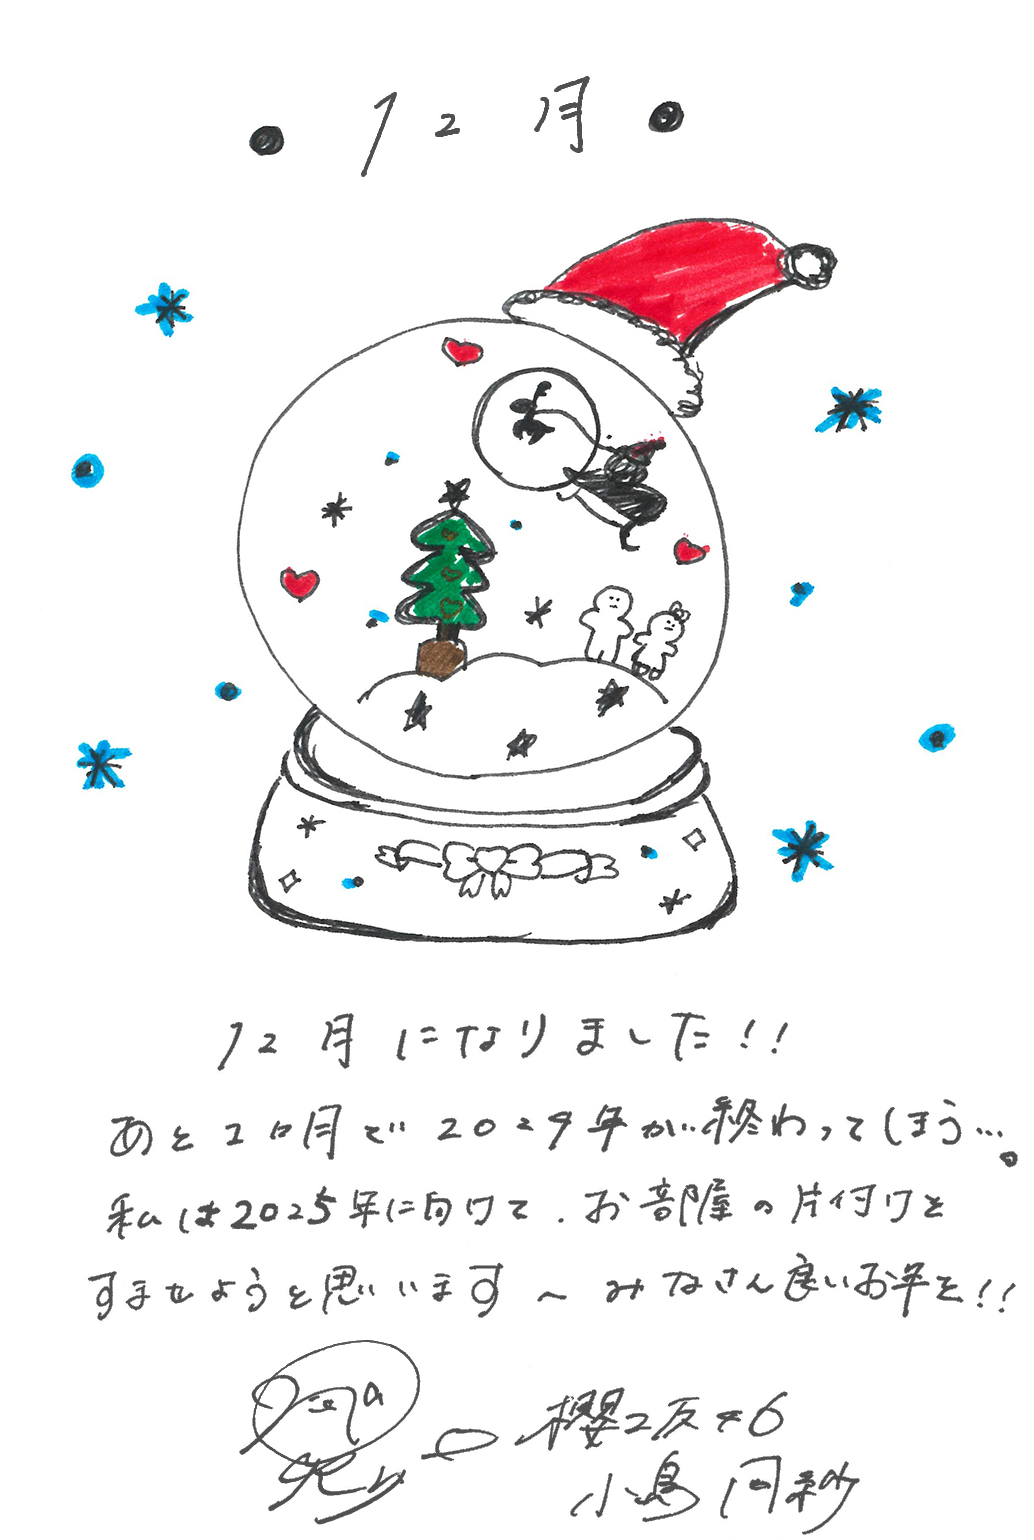 12月
12月になりました!!
あと1ヶ月で2024年が終わってしまう…。
私は2025年に向けて、お部屋の片付けを
すませようと思います〜みなさん良いお年を!!
櫻坂46
小島凪紗